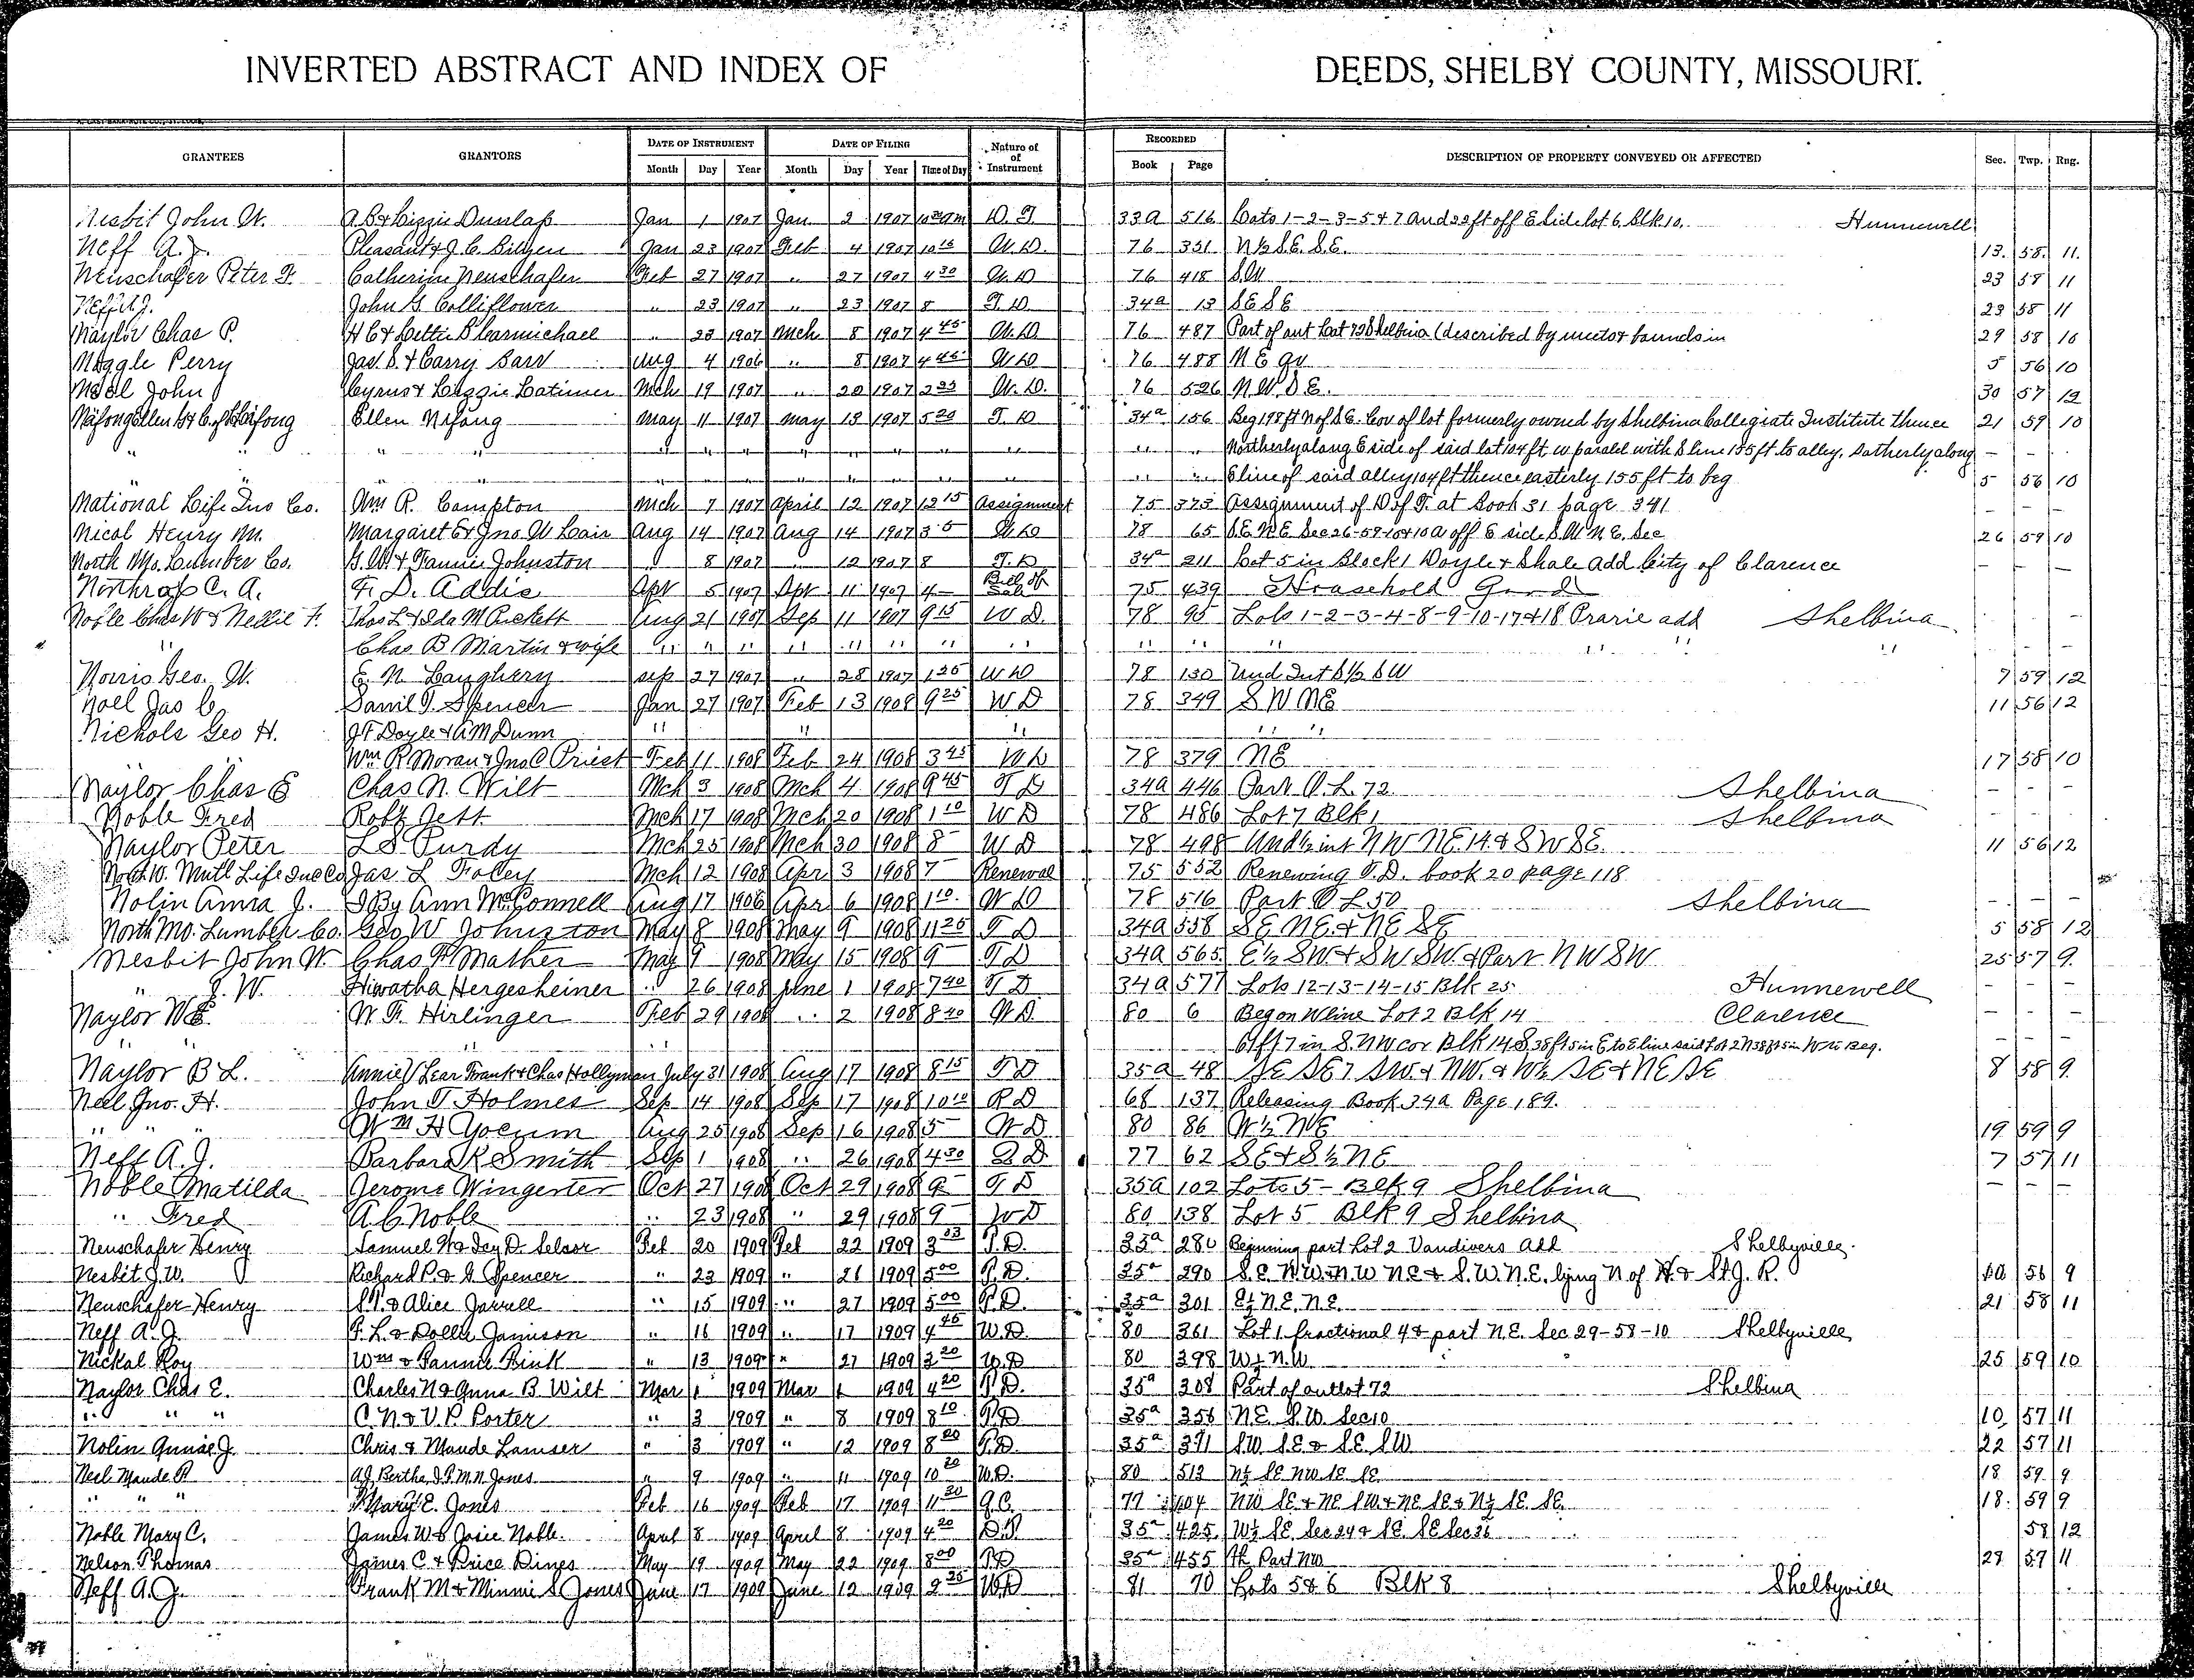 INVERTED ABSTRACT AND INDEX OF DEEDS, SHELBY COUNTY, MISSOURI.
GRANTEES GRANTORS DATE OF INSTRUMENT DATE OF FILING Nature of of Instrument RECORDED DESCRIPTION OF PROPERTY CONVEYED OR AFFECTED Sec. Twp. Rng.
Month Day Year Month Day Year Time of Day Book Page
Nesbit John W. A.B. & Lizzie Dunlap Jan 1 1907 Jan 2 1907 D. T. 33a 516 Lots 1-2-3-5 & 7 and 22 ft off E side lot 6. Blk 10. Hunnewell
Neff A.J. Pleasant & J.C. Jan 23 1907 Feb 4 1907 10 15 W.D. 76 331 N½ S.E. S.E. 13. 58. 11.
Neuschafer Peter F. Catherine Neuschafer Feb 27 1907 " 27 1907 4 30 W.D 76 418 S.W 23 58 11
Neff A.J. John G. Colliflower " 23 1907 " 23 1907 8 T.D. 34a 13 SE SE 23 58 11
Naylor Chas P. H C & Lettie B Carmichael " 23 1907 Mch 8 1907 4 45 W.D. 76 487 Part of out Lot 72 Shelbina (described by meets & bounds in 29 58 10
Naggle Perry Jas. S. & Carry Barr Aug 4 1906 " 8 1907 4 45 W D 76 488 N E qr 5 56 10
Noel John Cyrus & Lizzie Latimer Mch 19 1907 " 20 1907 W. D. 76 526 N.W. S.E. 30 57 12
Ellen Nifong May 11 1907 May 13 1907 5 20 T. D 34a 156 Beg 198 ft N of S.E. Cor of lot formerly owned by Shelbina Collegiate Institute thence 21 59 10
" " " " " " " " Northerly along E side of said lot 104 ft W paralel with S line 155 ft to alley, Sotherly along - -
" " " " " " " " E line of said alley 104 ft thence easterly 155 ft to beg 5 56 10
National Life Ins Co. Wm R. Compton Mch 7 1907 April 12 1907 12 15 Assignment 75 375 Assignment of D of T. at Book 31 page 341 - - -
Nicol Henry M. Margaret E & Jno W Lair Aug 14 1907 Aug 14 1907 W D 78 65 S.E. N.E Sec 26-59-10 & 10 a off E side S.W. N.E. Sec 26 59 10
North Mo. Lumber Co. G.W. & Fannie Johnston " 8 1907 " 12 1907 8 T. D 34a 211 Lot 5 in Block 1 Doyle & Shale Add City of Clarence - - -
Northrop C. A. F. D. Addie Apr 5 1907 Apr 11 1907 4 Bill of Sale 75 439 Household Goods
Noble Chas W & Nellie F. Thos L & Ida M Pickett Aug 21 1907 Sep 11 1907 9 15 W D. 78 95 Lots 1-2-3-4-8-9-10-17 & 18 Prarie add Shelbina
" Chas B Martin & wife " " " " " " " " " " " - -
Norris Geo. W. E. N. Laughery Sep 27 1907 " 28 1907 W D 78 130 Und Int S½ SW 7 59 12
Noel Jas C. Saml T. Spencer Jan 27 1907 Feb 13 1908 9 25 W D 78 349 S W NE 11 56 12
Nichols Geo H. J F Doyle & A M Dunn " " " " " "
Wm R Moran & Jno C Priest Feb 11 1908 Feb 24 1908 3 45 W D 78 379 NE 17 58 10
Naylor Chas E Chas N. Wilt Mch 3 1908 Mch 4 1908 9 45 T D 34a 446 Part O.L. 72 Shelbina - - -
Noble Fred Robt Jett Mch 17 1908 Mch 20 1908 1 10 W D 78 486 Lot 7 Blk 1 Shelbina - - -
Naylor Peter L S Purdy Mch 25 1908 Mch 30 1908 8 W D 78 498 Und ½ int NW NE 14 & SW SE. 11 56 12
North W. Mutl Life Ins Co Jas L Foley Mch 12 1908 Apr 3 1908 7 Renewal 75 552 Renewing T.D. book 20 page 118 - - -
Nolin Anna J. Ann McConnell Aug 17 1906 Apr 6 1908 1 10 W D 78 516 Part O L 50 Shelbina - - -
North Mo. Lumber Co. Geo W Johnston May 8 1908 May 9 1908 11 25 T D 34a 558 SE NE. & NE SE 5 58 12
Nesbit John W. Chas F Mather May 9 1908 May 15 1908 9 T D 34a 565 E½ SW & SW SW. & Part NW SW 25 57 9
" J. W. Hiwatha Hergesheiner " 26 1908 June 1 1908 7 40 T D 34a 577 Lots 12-13-14-15 Blk 25 Hunnewell - - -
Naylor W E. W. F. Hirlinger Feb 29 1908 " 2 1908 8 40 W D. 80 6 Beg on W line Lot 2 Blk 14 Clarence - - -
" " " " 61 ft 7 in S. NW cor Blk 14 S 38 ft 5 in E to E line said Lot 2 N 38 ft 5 in W to Beg. - - -
Naylor B L. Annie V Lear Frank & Chas Hollyman July 31 1908 Aug 17 1908 8 15 T D 35a 48 SE SE 7 SW. & NW. & W½ SE & NE SE 8 58 9
Neel Jno. H. John T Holmes Sep 14 1908 Sep 17 1908 10 10 R D 68 137 Releasing Book 34a Page 189.
" " " Wm H Yocum Aug 25 1908 Sep 16 1908 5 W D 80 86 W½ NE 19 59 9
Neff A. J. Barbara K Smith Sep 1 1908 " 26 1908 4 30 Q D 77 62 SE & S½ NE 7 57 11
Noble Matilda Jerome Wingerter Oct 27 1908 Oct 29 1908 9 T D 35a 102 Lots 5 - Blk 9 Shelbina - - -
" Fred A. C Noble " 23 1908 " 29 1908 9 W D 80 138 Lot 5 Blk 9 Shelbina
Neuschafer Henry Samuel W & Icy D. Selsor Feb 20 1909 Feb 22 1909 3 03 T.D. 35a 280 Beginning part Lot 2 Vandivers add Shelbyville.
Nesbit J.W. Richard P. & G Spencer " 23 1909 " 26 1909 5 00 T.D. 35a 290 S.E. N.W. & N.W NE & S.W. N.E. lying N of H. & St. J. R. 56 9
Neuschafer Henry S.T. & Alice Jarrell " 15 1909 " 27 1909 5 00 T.D. 35a 301 E½ N.E. N.E. 21 58 11
Neff A. J. F. L. & Dolly Jamison " 16 1909 " 17 1909 4 45 W.D. 80 361 Lot 1 fractional 4 & part N.E. Sec 29-58-10 Shelbyville
Nickal Roy Wm & Fannie Fink " 13 1909 " 27 1909 3 20 W.D 80 398 W½ N.W 25 59 10
Naylor Chas E. Charles N & Anna B Wilt Mar 1 1909 Mar 1 1909 4 20 T.D. 35a 308 Part of outlot 72 Shelbina
" " " C.N & V.P. Porter " 3 1909 " 8 1909 8 10 T.D 35a 356 N.E. S.W. Sec 10 10 57 11
Nolin Annie J. Chris & Maude Lamser " 3 1909 " 12 1909 8 20 T.D. 35a 371 S.W S.E. & S.E. S.W 22 57 11
Neel Maude R A J Bertha J. F. M. N. Jones " 9 1909 " 11 1909 10 20 W.D. 80 513 N½ SE NW SE SE 18 59 9
" " " Mary E. Jones Feb 16 1909 Feb 17 1909 11 30 Q.C. 77 104 NW SE & NE SW & NE SE & N½ SE SE. 18. 59 9
Noble Mary C. James W & Josie Noble. April 8 1909 April 8 1909 4 20 D.T. 35a 425 W½ SE. Sec 24 & SE. SE Sec 26 58 12
Nelson Thomas James C. & Price Dines May 19 1909 May 22 1909 8 00 T.D 35a 455 Part NW 27 57 11
Neff A. J. Frank M & Minnie S Jones June 17 1909 June 12 1909 2 25 W.D 81 70 Lots 5 & 6 Blk 8 Shelbyville